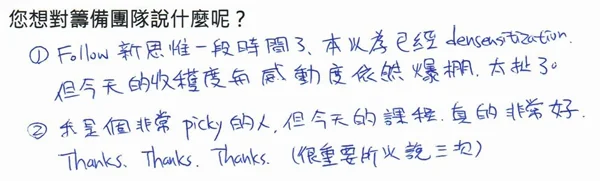 您想對籌備團隊說什麼呢？
① Follow 新思惟一段時間了、本以為已經 densensitization.
但今天的收穫度與感動度依然爆棚. 太扯了。
② 我是個非常 picky 的人, 但今天的課程. 真的非常好.
Thanks、Thanks、Thanks. (很重要所以說三次)